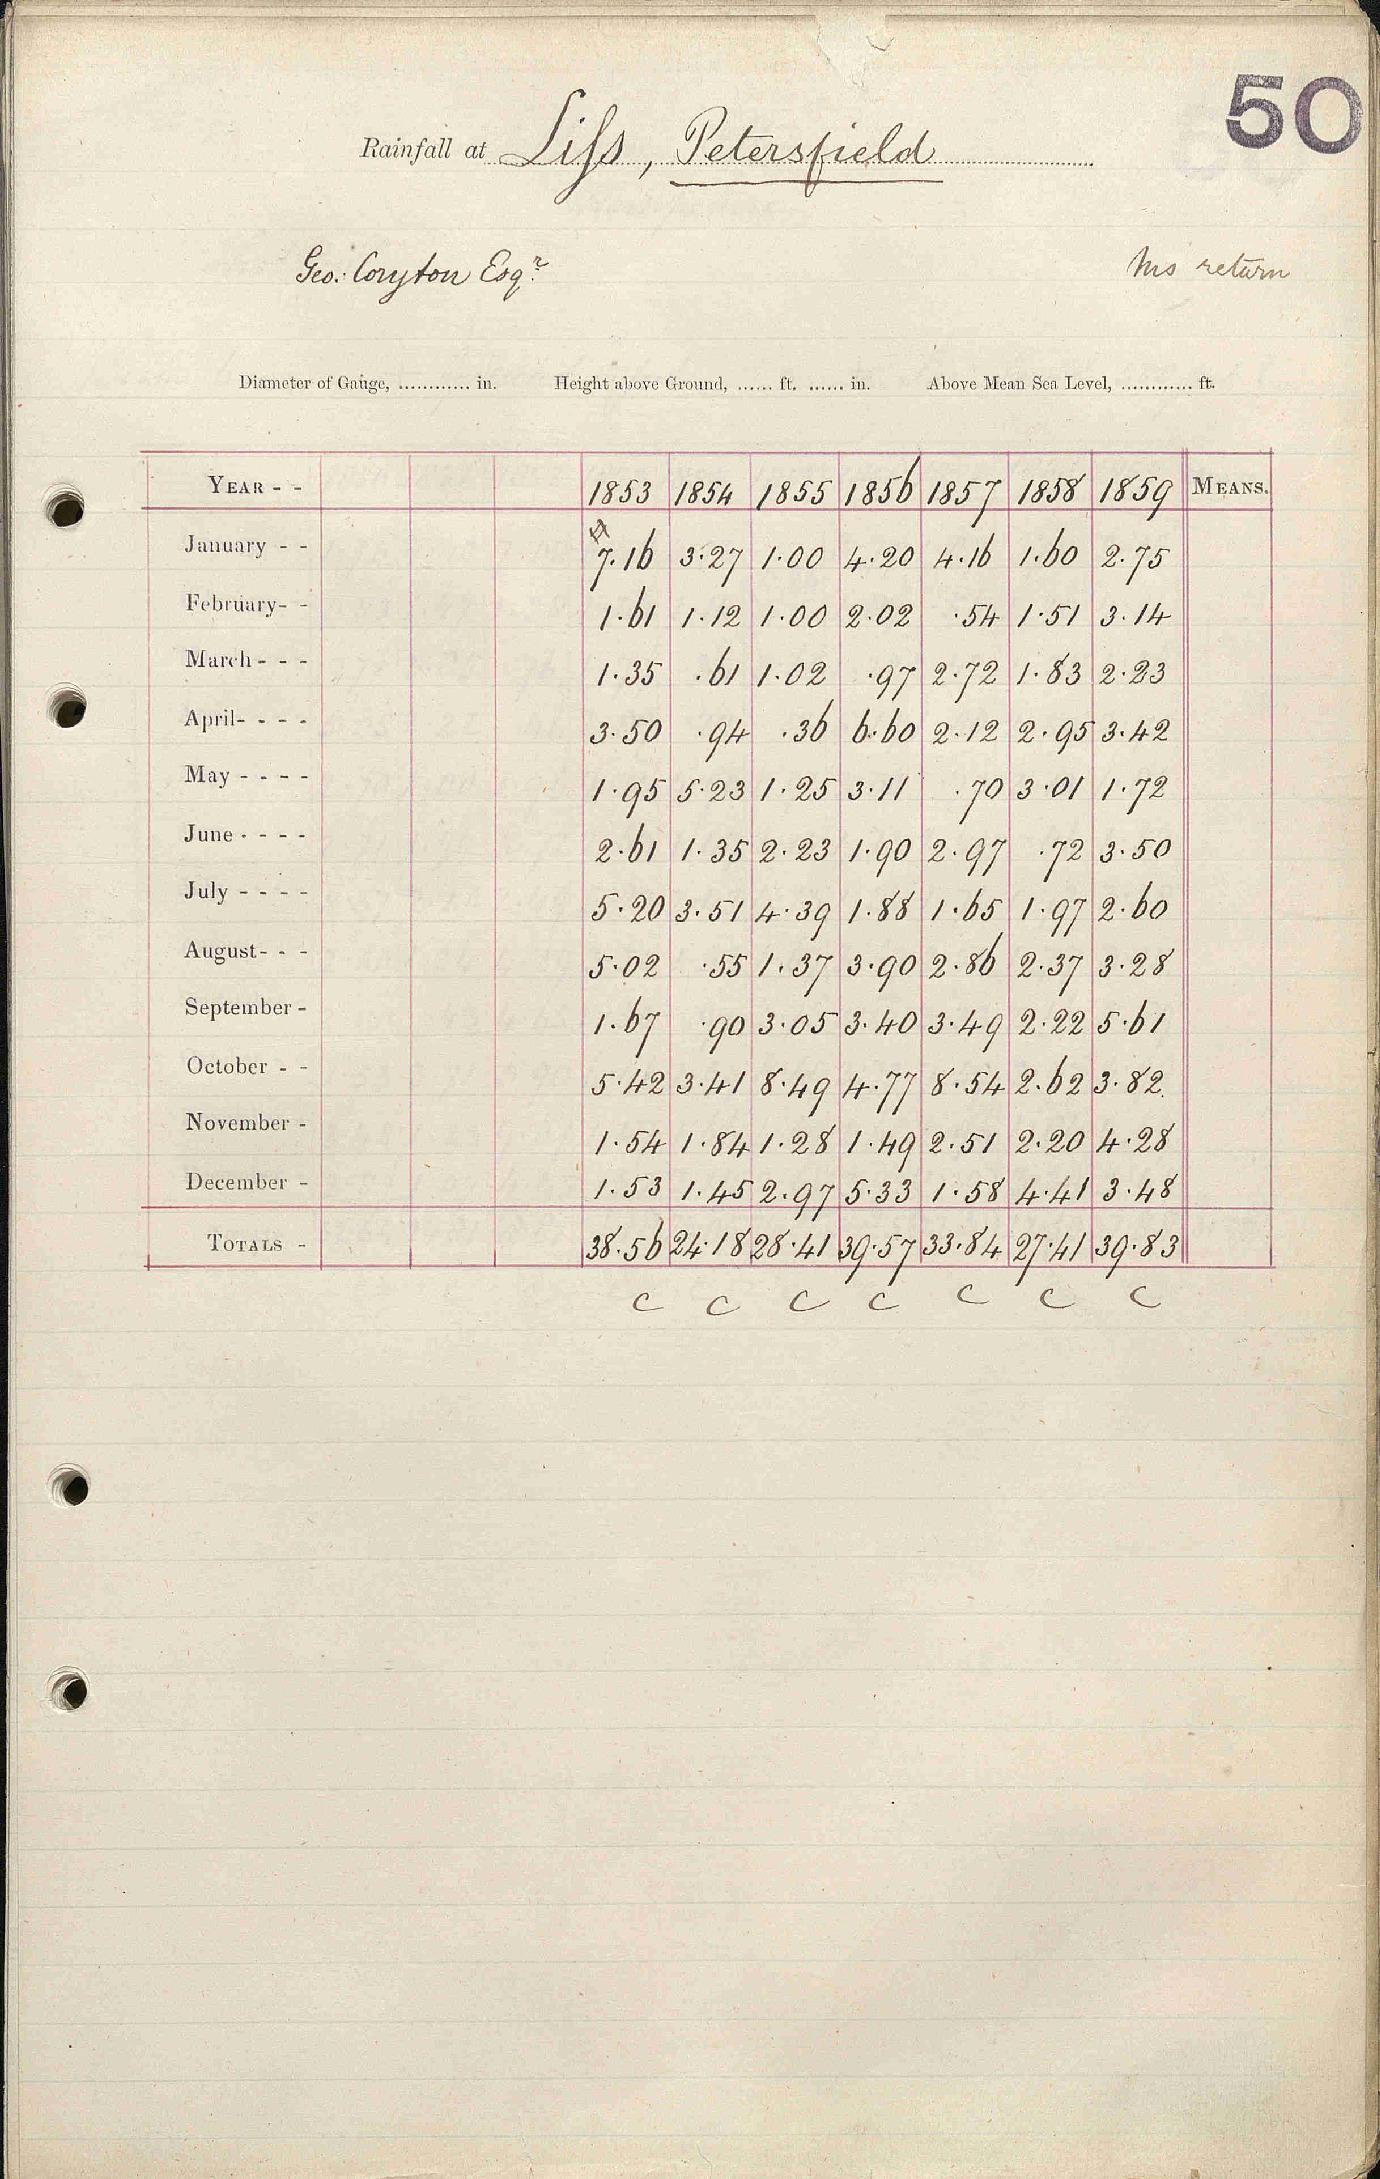 50
Rainfall at Liss, Petersfield
Geo: Coryton Esqr. Ms return
Diameter of Gauge, ............ in. Height above Ground, ...... ft. ...... in. Above Mean Sea Level, ............ ft.
YEAR - - 1853 1854 1855 1856 1857 1858 1859 MEANS.
January - - 7.16 3.27 1.00 4.20 4.16 1.60 2.75
February - - 1.61 1.12 1.00 2.02 .54 1.51 3.14
March - - - 1.35 .61 1.02 .97 2.72 1.83 2.23
April - - - - 3.50 .94 .36 6.60 2.12 2.95 3.42
May - - - - 1.95 5.23 1.25 3.11 .70 3.01 1.72
June - - - - 2.61 1.35 2.23 1.90 2.97 .72 3.50
July - - - - 5.20 3.51 4.39 1.88 1.65 1.97 2.60
August - - - 5.02 .55 1.37 3.90 2.86 2.37 3.28
September - 1.67 .90 3.05 3.40 3.49 2.22 5.61
October - - 5.42 3.41 8.49 4.77 8.54 2.62 3.82
November - 1.54 1.84 1.28 1.49 2.51 2.20 4.28
December - 1.53 1.45 2.97 5.33 1.58 4.41 3.48
TOTALS - 38.56 24.18 28.41 39.57 33.84 27.41 39.83
C C C C C C C